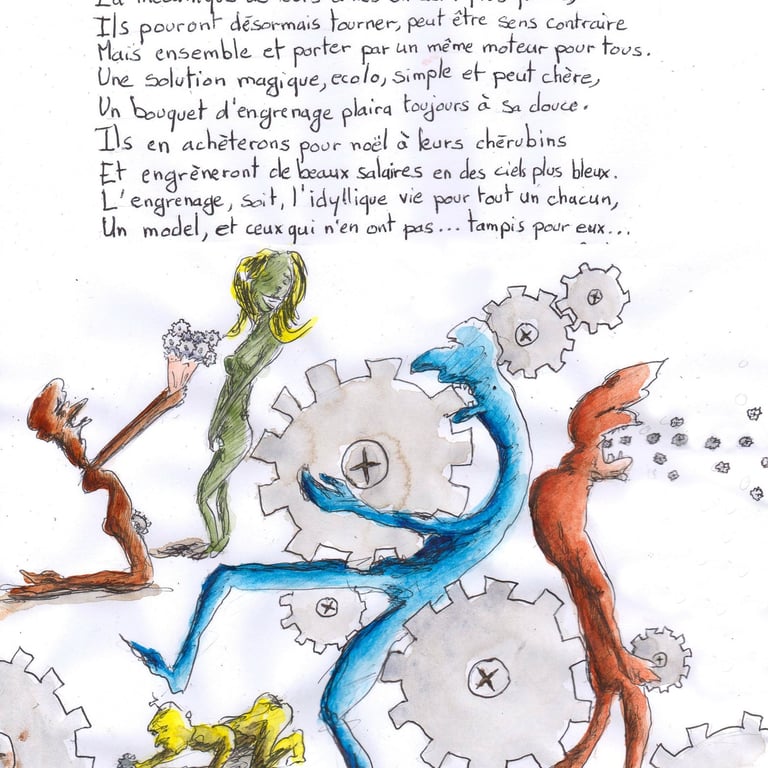 Ils pouront désormais tourner, peut être sens contraire
Mais ensemble et porter par un même moteur pour tous.
Une solution magique, ecolo, simple et peut chère,
Un bouquet d'engrenage plaira toujours à sa douce.
Ils en achèterons pour noël à leurs chérubins
Et engrèneront de beaux salaires en des ciels plus bleux.
L'engrenage, soit, l'idyllique vie pour tout un chacun,
Un model, et ceux qui n'en ont pas... tampis pour eux...